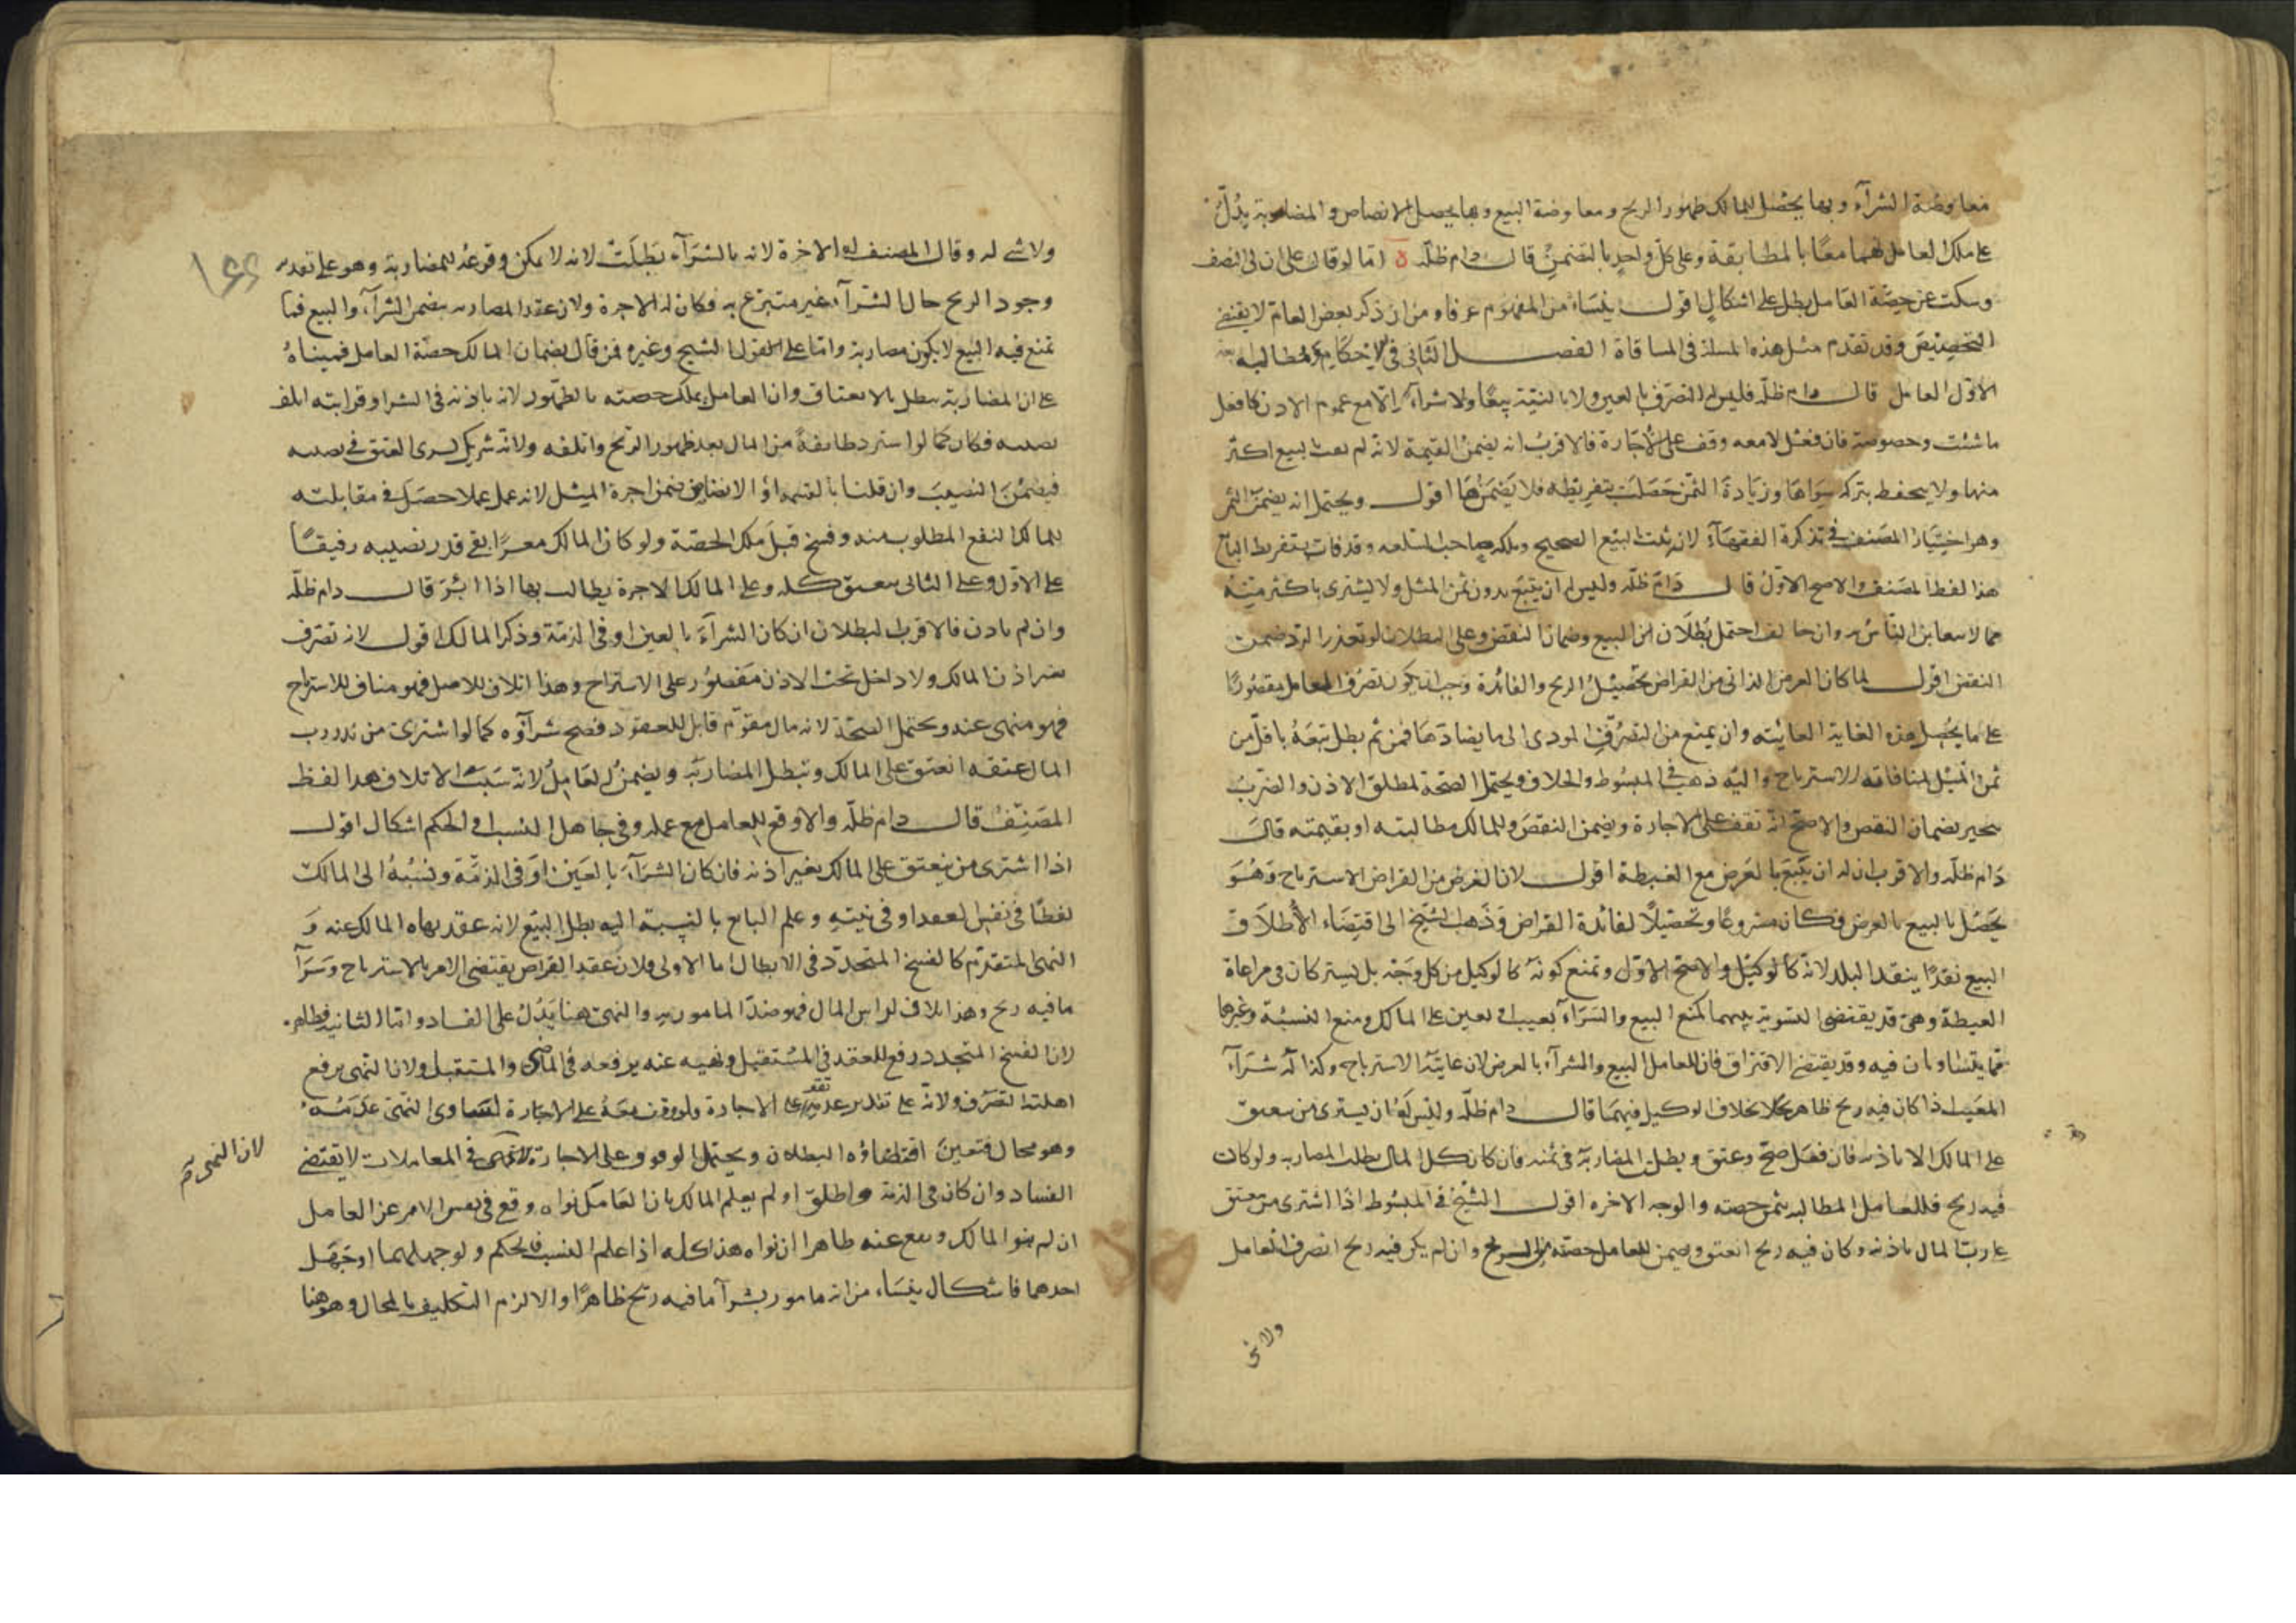 معاوضة الشرآء وبها يحصل للمالك ظهور الربح ومعاوضة البيع وبها يحصل الانضاض والمضاربة يدُلّ
على ملك العامل لهما معًا بالمطابقة وعلى كلّ واحدٍ بالتضمن قال دام ظلّه ة امّا لو قال على ان لى النصف
وسكت عن حصّة العامل بطل على اشكال اقول ينشاء من المفهوم عرفا ومن ان ذكر بعض العام لا يقتضى
التخصيص وقد تقدم مثل هذه المسئلة فى المساقاة الفصل الثانى فى الاحكام ومطالبه
الاوّل العامل قال دام ظلّه فليس له التصرف بالعين ولا بالنيّة بيعًا ولا شرآء الّا مع عموم الاذن كافعل
ما شئت وخصوصه فان فعل لا معه وقف على الاجازة فالاقرب انه يضمن القيمة لانه لم يفت بالبيع اكثر
منها ولا يتحفظ بتركه سواها وزيادة الثمن حصلت بتفريطه فلا يضمنها اقول ويحتمل انه يضمن الثمن
وهو اختيار المصنف فى تذكرة الفقهآء لانه ثبت البيع الصحيح وملكه صاحب السلعه وقد فات بتفريط البايع
هذا لفظ المصنف والاصح الاوّل قال دام ظلّه وليس له ان يبيع بدون ثمن المثل ولا يشترى باكثر منه
مما لا يتغابن الناس به وان خالف احتمل بُطلان البيع وضمان النقص وعلى البطلان لو تعذر الرد ضمن
النقص اقول لما كان الغرض الذاتى من القراض تحصيل الربح والفائدة وجب ان يكون تصرّف العامل مقصورًا
على ما يحصل هذه الغاية الغائيّه وان يمنع من التصرّف المودى الى ما يضادّها فمن ثم بطل بيعهُ باقل من
ثمن المثل لمنافاته الاسترباح واليه ذهب فى المبسوط والخلاف ويحتمل الصحة لمطلق الاذن والضرب
يجبر بضمان النقص والاصح انه تقف على الاجازة ويضمن النقص وللمالك مطالبته او بقيمته قال
دام ظلّه والاقرب ان له ان يبيع بالعرض مع الغبطة اقول لان الغرض من القراض الاسترباح وهُوَ
يحصل بالبيع بالعرض فكان مشروعًا وتحصيلًا لفائدة القراض وذهب الشيخ الى اقتضاء الاطلاق
البيع نقدًا بنقد البلد لانه كالوكيل والاصح الاوّل ونمنع كونه كالوكيل من كل وجه بل يشتركان فى مراعاة
الغبطة وهى قد يقتضى التسوية بينهما كمنع البيع والشرآء بعيب او بعين على المالك ومنع النسئة وغيرها
مما يتساويان فيه وقد يقتضى الافتراق فان للعامل البيع والشرآء بالعرض لان غايته الاسترباح وكذا له شرآء
المعيب اذا كان فيه ربح ظاهر بخلاف الوكيل فيهما قال دام ظلّه وليس له ان يشترى من ينعتق
على المالك الا باذنه فان فعل صحّ وعتق وبطلت المضاربة فى ثمنه فان كان كل المال بطلت المضاربه ولو كان
فيه ربح فللعامل المطالبة بثمن حصته والوجه الاخره اقول الشّيخ فى المبسوط اذا اشترى من يعتق
على ربّ المال باذنه وكان فيه ربح انعتق ويضمن للعامل حصته من الربح وان لم يكن فيه ربح انصرف العامل
ولا شى
ولا شى له وقال المصنف له الاخرة لانه بالشرآء بَطلَت لانه لا يمكن وقوعه للمضاربة وهو على تقدير
وجود الربح حال الشرآء غير متبرع به فكان له الاجرة ولان عقد المضاربه يضمن الشرآء والبيع فما
تمنع فيه البيع لا يكون مضاربة وامّا على القول الشيخ وغيره فمن قال بضمان المالك حصّة العامل فمبناهُ
على ان المضاربة تبطل بالاعتاق وان العامل يملك حصته بالظهور لانه باذنه فى الشراء وقرابته اتلف
نصيبه فكان كما لو استرد طايفةً من المال بعد ظهور الربح واتلفه ولانه شريك يسرى العتق فى نصيبه
فيضمن النصيب وان قلنا بالقسمه اوْ الانضاض يضمن اجرة المثل لانه عمل عملا حصل فى مقابلته
للمالك النفع المطلوب منه وفسخ قبل ملك الحصّة ولو كان المالك معسرًا بقى قدر نصيبه رقيقًا
على الاوّل وعلى الثانى ينعتق كله وعلى المالك الاجرة يطالب بها اذا ايسر قال دام ظلّه
وان لم ياذن فالاقرب البطلان ان كان الشرآء بالعين او فى الذمّة وذكر المالك اقول لانه تصرف
بغير اذن المالك ولا داخل تحت الاذن مقصُور على الاسترباح وهذا اتلاف للاصل فهو مناف للاسترباح
فهو منهى عنه ويحتمل الصحّة لانه مال متقوّم قابل للعقود فصح شرآؤه كما لو اشترى من نذر رب
المال عتقه انعتق على المالك وتبطل المضاربة ويضمن العَامِلُ لانه سَبب الاتلاف هذا لفظ
المصنّفُ قال دام ظلّه والا وقع للعامل مع علمه وفى جاهل النسب او الحكم اشكال اقول
اذا اشترى من ينعتق على المالك بغير اذنه فان كان الشرآء بالعَين او فى الذمّة ونسبهُ الى المالك
لفظًا فى نفس العقد او فى نيته وعلم البايع بالنسبة اليه بطل البيع لانه عقد نهاه المالك عنه وَ
النهى المتقدّم كالفسخ المتجدد فى الابطال اما الاولى فلان عقد القراض يقتضى الامر بالاسترباح وشرآ
ما فيه ربح وهذا اتلاف لراس المال فهو ضدّ المامور به والنهى هنا يدُلُ على الفساد وامّا الثانيه فظاهر
لان الفسخ المتجدد رفع للعقد فى المستقبل ونهيه عنه يرفعه فى الماضى والمستقبل ولان النهى يرفع
اهلية التصرف ولانه على تقدير عدمه يقف على الاجازة ولو وقف معهُ على الاجازة لساوى النهى عَدَمُه
وهو محال فتعين اقتضاؤه البطلان ويحتمل الوقوف على الاجازة لان النهى فى المعاملات لا يقتضى
لان النهى
الفساد وان كان فى الذمة واطلق او لم يعلم المالك بان العامل نواه وقع فى نفس الامر عن العامل
ان لم ينو المالك ويقع عنه ظاهرا ان نواه هذا كله اذا علم النسب والحكم ولو جهلهما او جَهِل
احدهما فاشكال ينشاء من انه مامور بشرآ ما فيه ربح ظاهرًا والا لزم التكليف بالمحال وهو هنا